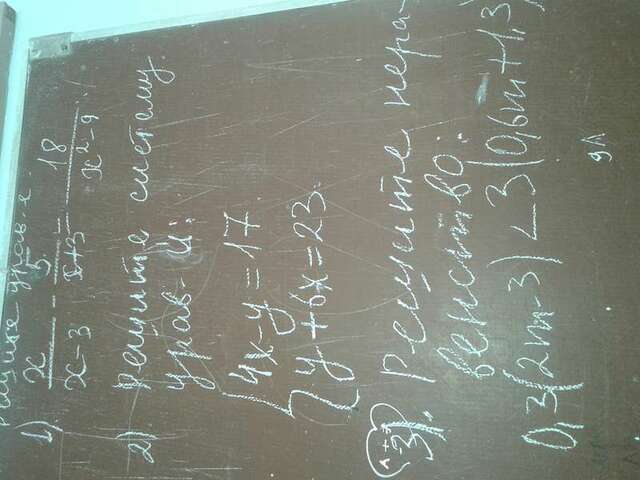 Решите урав-е.
1) x/(x-3) - 5/(x+3) = 18/(x²-9)
2) Решите систему
урав-й:
{ 4x-y=17
y+6x=23.
3). Решите нера-
венство:
0,3(2m-3) < 3(0,6m+1,3)
9А